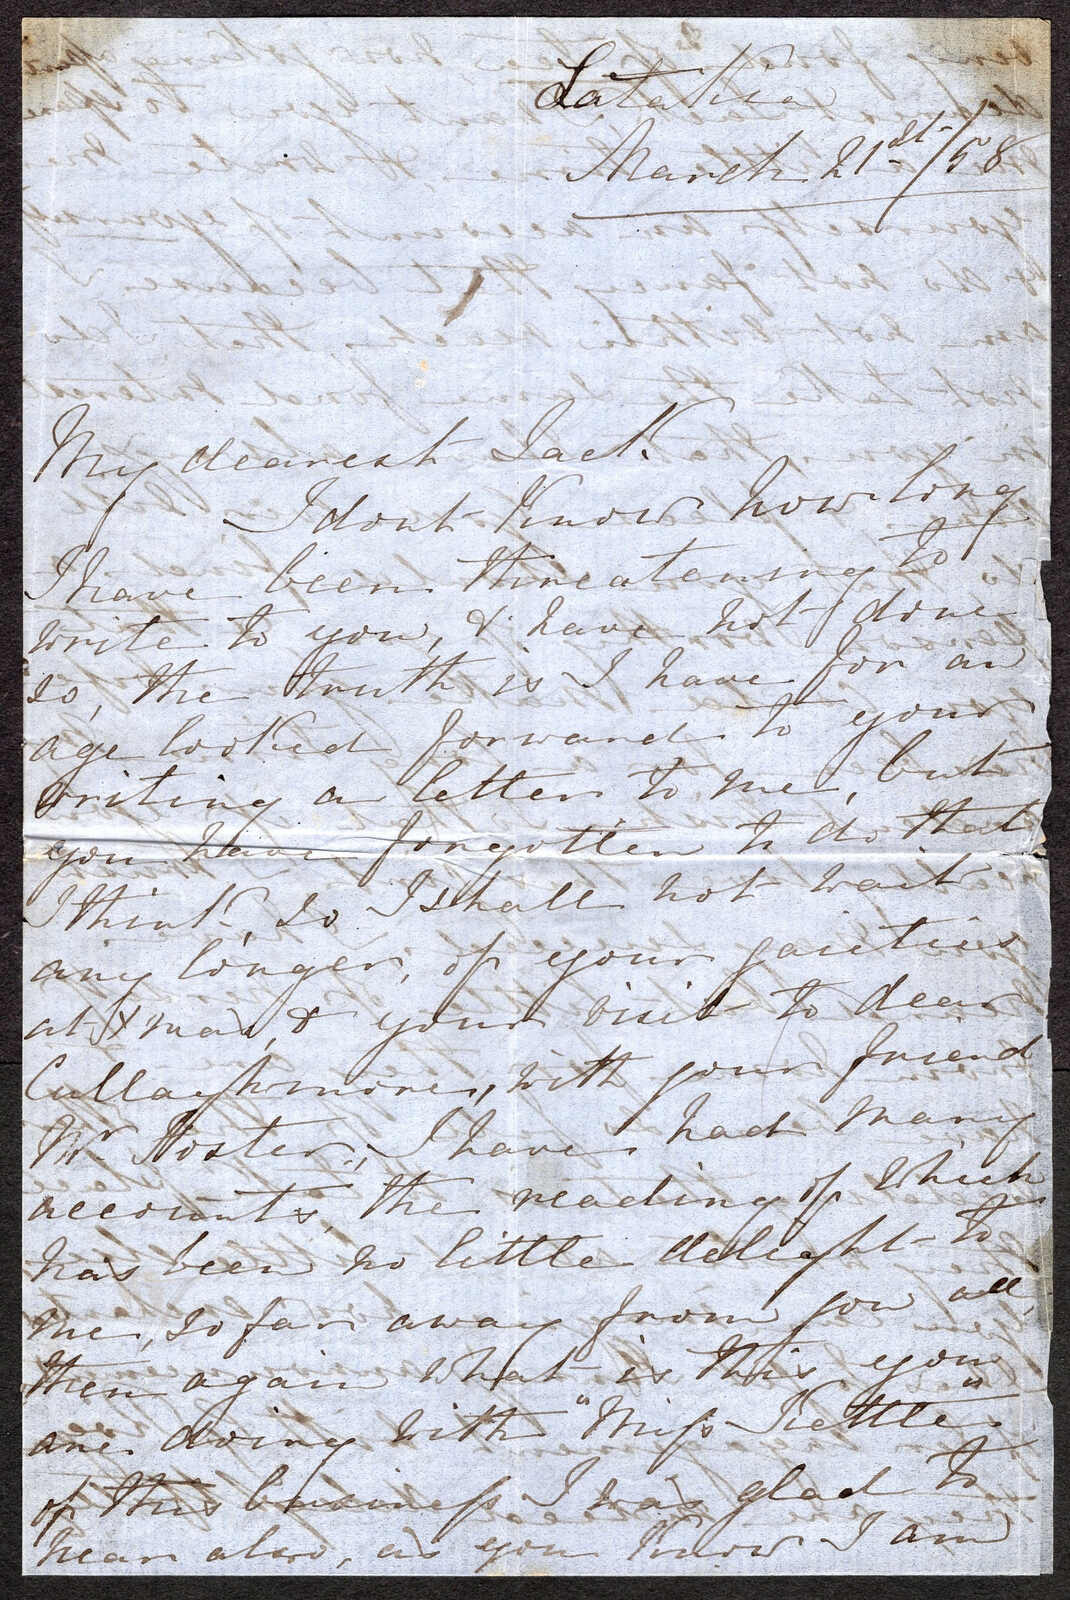 Latakia
March 21st/58
My dearest Jack.
I dont know how long
I have been threatening to
write to you, & have not done
so, the truth is I have for an
age looked forward to your
writing a letter to me, but
you have forgotten to do that
I think, so I shall not wait
any longer, of your gaieties
at Xmas, & your visit to dear
Cullaghmore, with your friend
Mr. Foster, I have had many
accounts, the reading of which
has been no little delight to
me, so far away from you all,
then again what is this you
are doing with "Miss Kettle"
of this business I was glad to
hear also, as you know I am